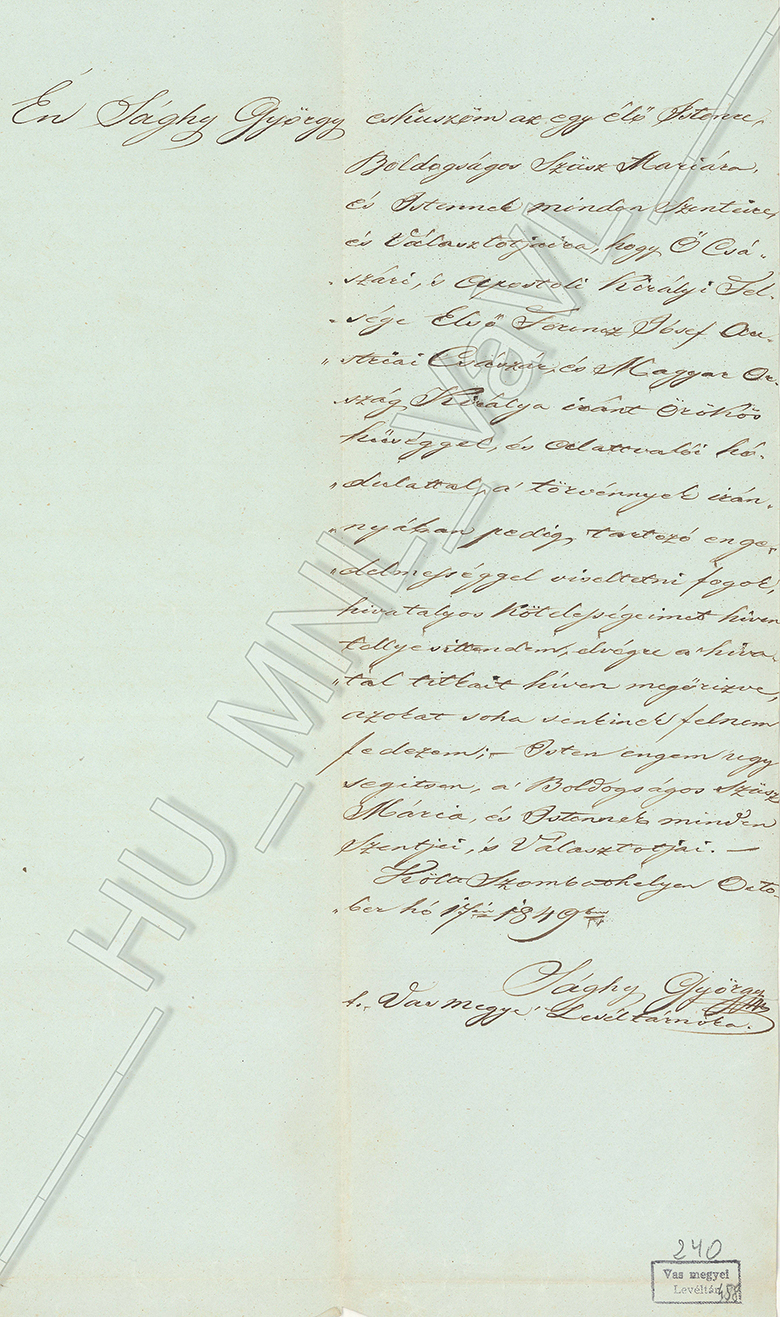 Én Sághy György esküszöm az egy élő Istenre,
Boldogságos Szüsz Mariára,
és Istennek minden Szenteire,
és Választotjaira, hogy Ő Csá„
„szári, 's Apostoli Királyi Fel„
„sége Első Ferencz Jósef Au„
„striai Császár, és Magyar Or„
szág Királya iránt Örökös
hűséggel, és alattvalói hó„
„dulattal, a' törvénnyek irán„
„nyában pedig tartozó enge„
„delmességgel viseltetni fogok,
hivatalyos Kötelességeimet híven
tellyesittendem, elvégre a hiva„
„tal titkait híven megőrizve,
azokat soha senkinek felnem
fedezem; – Isten engem ugy
segitsen, a' Boldogságos Szüsz
Mária, és Istennek minden
Szentjei, 's Választotjai. –
Költ Szombathelyen Octo„
„ber hó 17én 1849
Sághy György
t. Vas megye Levéltárnoka.
240
Vas megyei
Levéltár
HU_MNL_VaVL